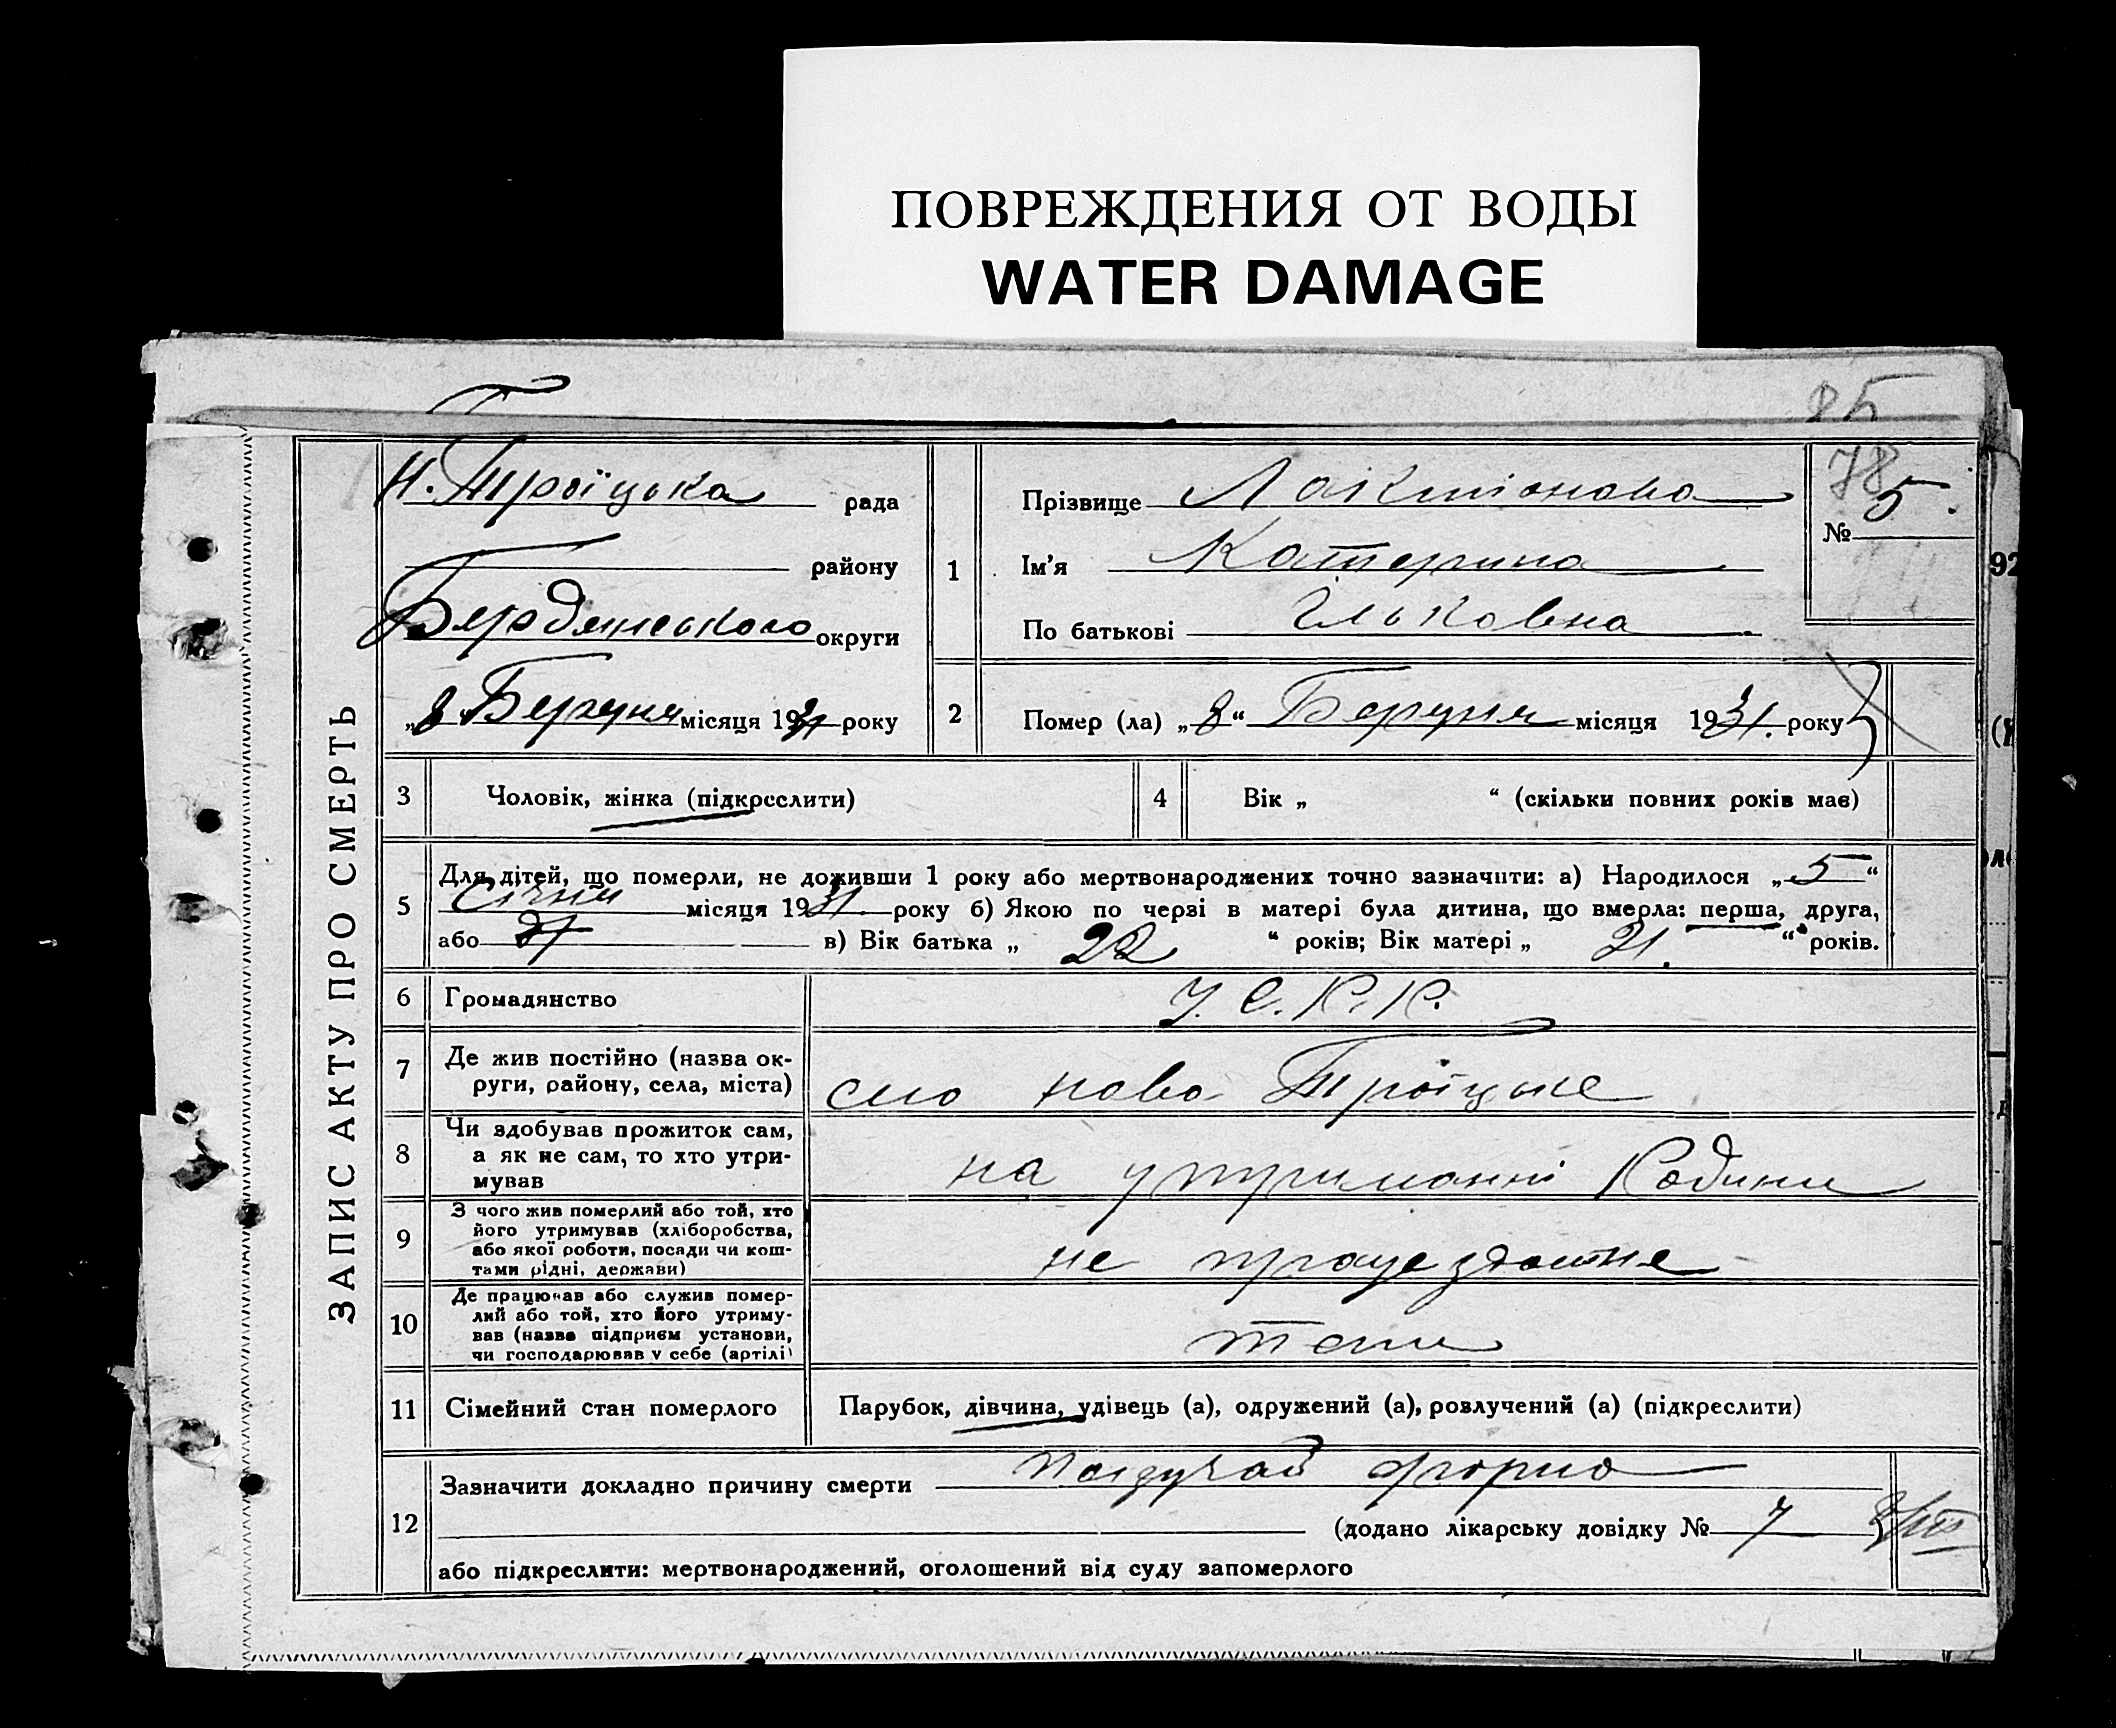 ПОВРЕЖДЕНИЯ ОТ ВОДЫ
WATER DAMAGE
85
ЗАПИС АКТУ ПРО СМЕРТЬ
Н. Троїцька рада
району
Бердянського округи
„8“ Березня місяця 1931 року
1
Прізвище Лактіонова
Ім'я Катерина
По батькові Ільковна
78
№ 5.
92
2
Помер (ла) „8“ Березня місяця 1931. року
3
Чоловік, жінка (підкреслити)
4
Вік „ “ (скільки повних років має)
5
Для дітей, що померли, не доживши 1 року або мертвонароджених точно зазначити: а) Народилося „5“
Січня місяця 1931. року б) Якою по черзі в матері була дитина, що вмерла: перша, друга,
або в) Вік батька „ 22 “ років; Вік матері „ 21. “ років.
6
Громадянство
У. С. Р. Р.
7
Де жив постійно (назва ок-
руги, району, села, міста)
село ново Троїцьке
8
Чи здобував прожиток сам,
а як не сам, то хто утри-
мував
на утриманні Родини
9
З чого жив померлий або той, хто
його утримував (хліборобства,
або якої роботи, посади чи кош-
тами рідні, держави)
не працездатне
10
Де працював або служив помер-
лий або той, хто його утриму-
вав (назва підприєм установи,
чи господарював у себе (артілі)
11
Сімейний стан померлого
Парубок, дівчина, удівець (а), одружений (а), розлучений (а) (підкреслити)
12
Зазначити докладно причину смерти
(додано лікарську довідку № 7 )
або підкреслити: мертвонароджений, оголошений від суду запомерлого